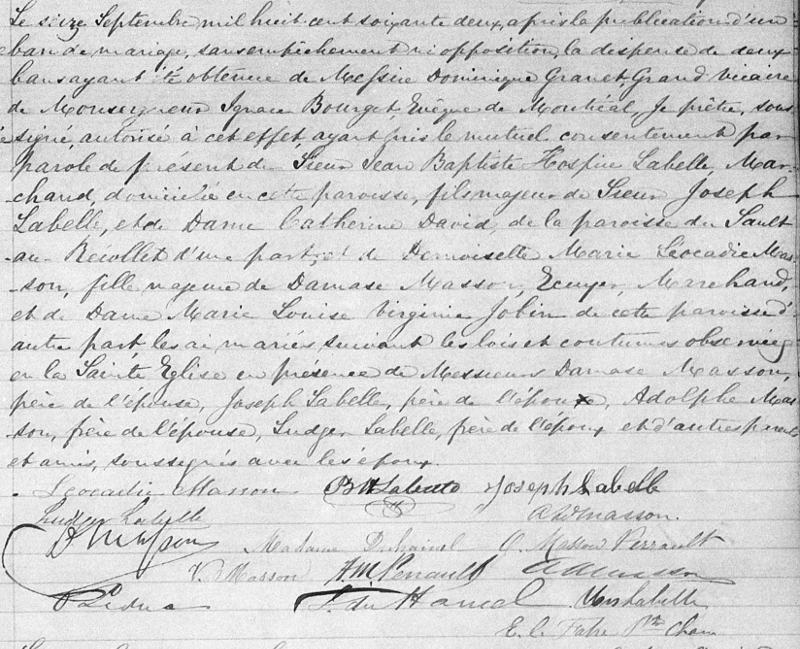 Le seize Septembre mil huit cent soixante deux, après la publication d'un
ban de mariage, sans empêchement ni opposition, la dispense de deux
bans ayant été obtenue de Messire Dominique Granet, Grand vicaire
de Monseigneur Ignace Bourget, Evêque de Montréal, Je prêtre, sous
signé, autorisé à cet effet, ayant pris le mutuel consentement par
parole de présent de Sieur Jean Baptiste Hospice Labelle, Mar-
-chand, domicilié en cette paroisse, fils majeur de Sieur Joseph
Labelle, et de Dame Catherine David, de la paroisse du Sault
-au-Récollet d'une part, et de Demoiselle Marie Léocadie Mas-
-son, fille majeure de Damase Masson, Ecuyer, Marchand,
et de Dame Marie Louise Virginie Jobin de cette paroisse d'
autre part, les ai mariés suivant les lois et coutumes observées
en la Sainte Eglise en présence de Messieurs Damase Masson,
père de l'épouse, Joseph Labelle, père de l'époux, Adolphe Mas-
-son, frère de l'épouse, Ludger Labelle, frère de l'époux et d'autres parents
et amis, soussignés avec les époux.
Léocadie Masson Joseph Labelle
Ludger Labelle Masson.
D Masson Madame Duhamel Masson Perrault
V. Masson Perrault Masson
du Hamel Labelle
E. C. Fabre Ptre Chan